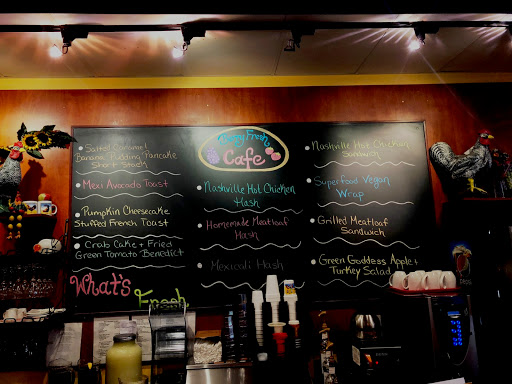 Salted Caramel
Banana Pudding Pancake
Short Stack
Mexi Avocado Toast
Pumpkin Cheesecake
Stuffed French Toast
Crab Cake + Fried
Green Tomato Benedict
What's
Fresh
Fresh
Cafe
Nashville Hot Chicken
Hash
Homemade Meatloaf
Hash
Mexicali Hash
Nashville Hot Chicken
Sandwich
Superfood Vegan
Wrap
Grilled Meatloaf
Sandwich
Green Goddess Apple +
Turkey Salad